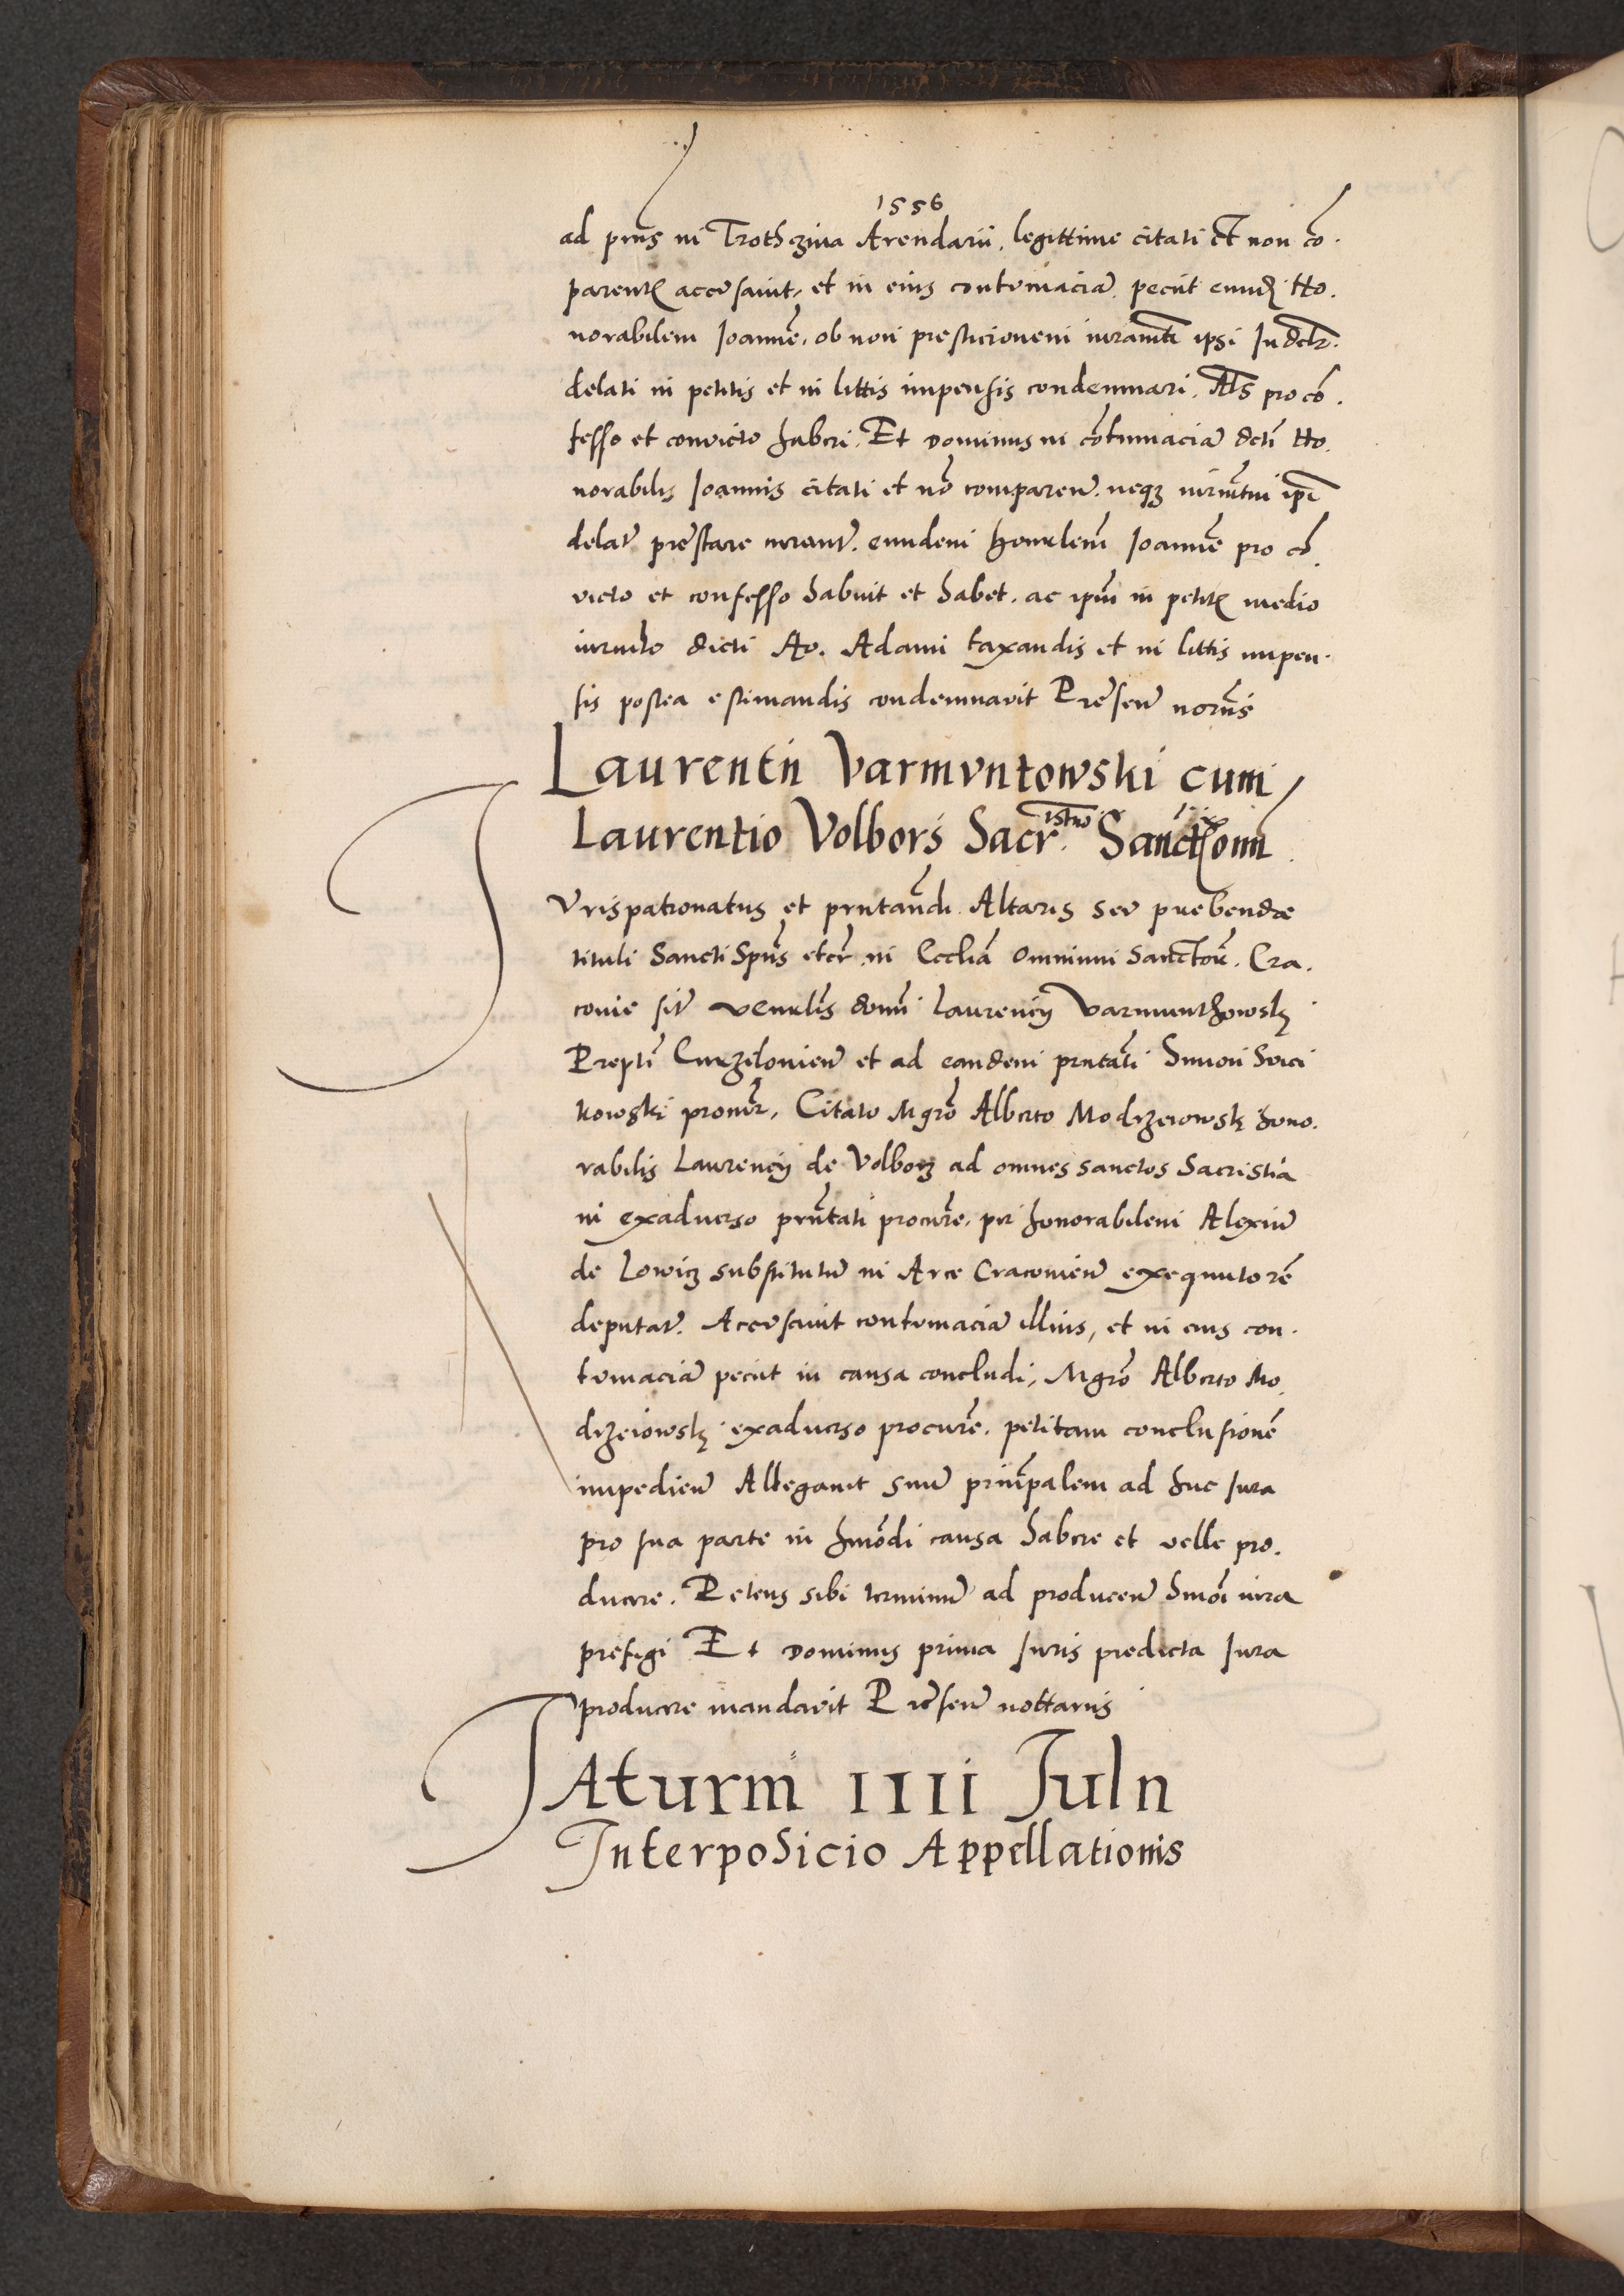 1556
ad pñs in Trothczina Arendarii, legittime citati et non cō.
parentē accusavit, et in eius contumaciā peciit eund. Ho.
norabilem Ioannē, ob non presticionem iuramti ipsi Indelr.
delati in petitis et in littis impensis condemnari. Als pro cō.
fesso et convicto haberi. Et Dominus in cōtumaciā dcti Ho.
norabilis Ioannis citati et nō comparen. neqz iurmtm ipi
delat prestare curant. eundem honrlem Ioannē pro cō.
victo et confesso habuit et habet. ac ipm in petit medio
iurmto dicti Ao. Adami taxandis et in littis impen.
sis postea estimandis condemnavit Presen nornis
Laurentii Varmvntowski cum
Laurentio Volbors Sacristno Sanct omn
Iurispatronatus et prntandi Altaris seu prebendæ
tituli Sancti Spus etcr. in Ecclia Omnium Sanctor. Cra.
covie sit venrlis domi Laurencij Varmunthowsk
Prepti Cur̄zeloviens et ad eandem prntati Simon
kowski procur, Citato Mgro Alberto Modrzeiowsk hono.
rabilis Laurencij de Volborz ad omnes sanctos Sacristia
ni exadverso prntati procure. per honorabilem Alexiū
de Lowicz substitutū in Arce Cracovien exequutorē
deputat. Accusavit contumaciā illius, et in eius con.
tumaciā peciit in causa concludi, Mgro Alberto Mo
drzeiowsk exadverso procure. petitam conclusionē
impedien Allegavit suū principalem ad huc Iura
pro sua parte in hmodi causa habere et velle pro.
ducere. Petens sibi terminū ad producen hmoi iura
prefigi Et Dominus prima Iuris predicta Iura
producere mandavit Presen nottariis
SAturni IIII Julii
Interposicio Appellationis